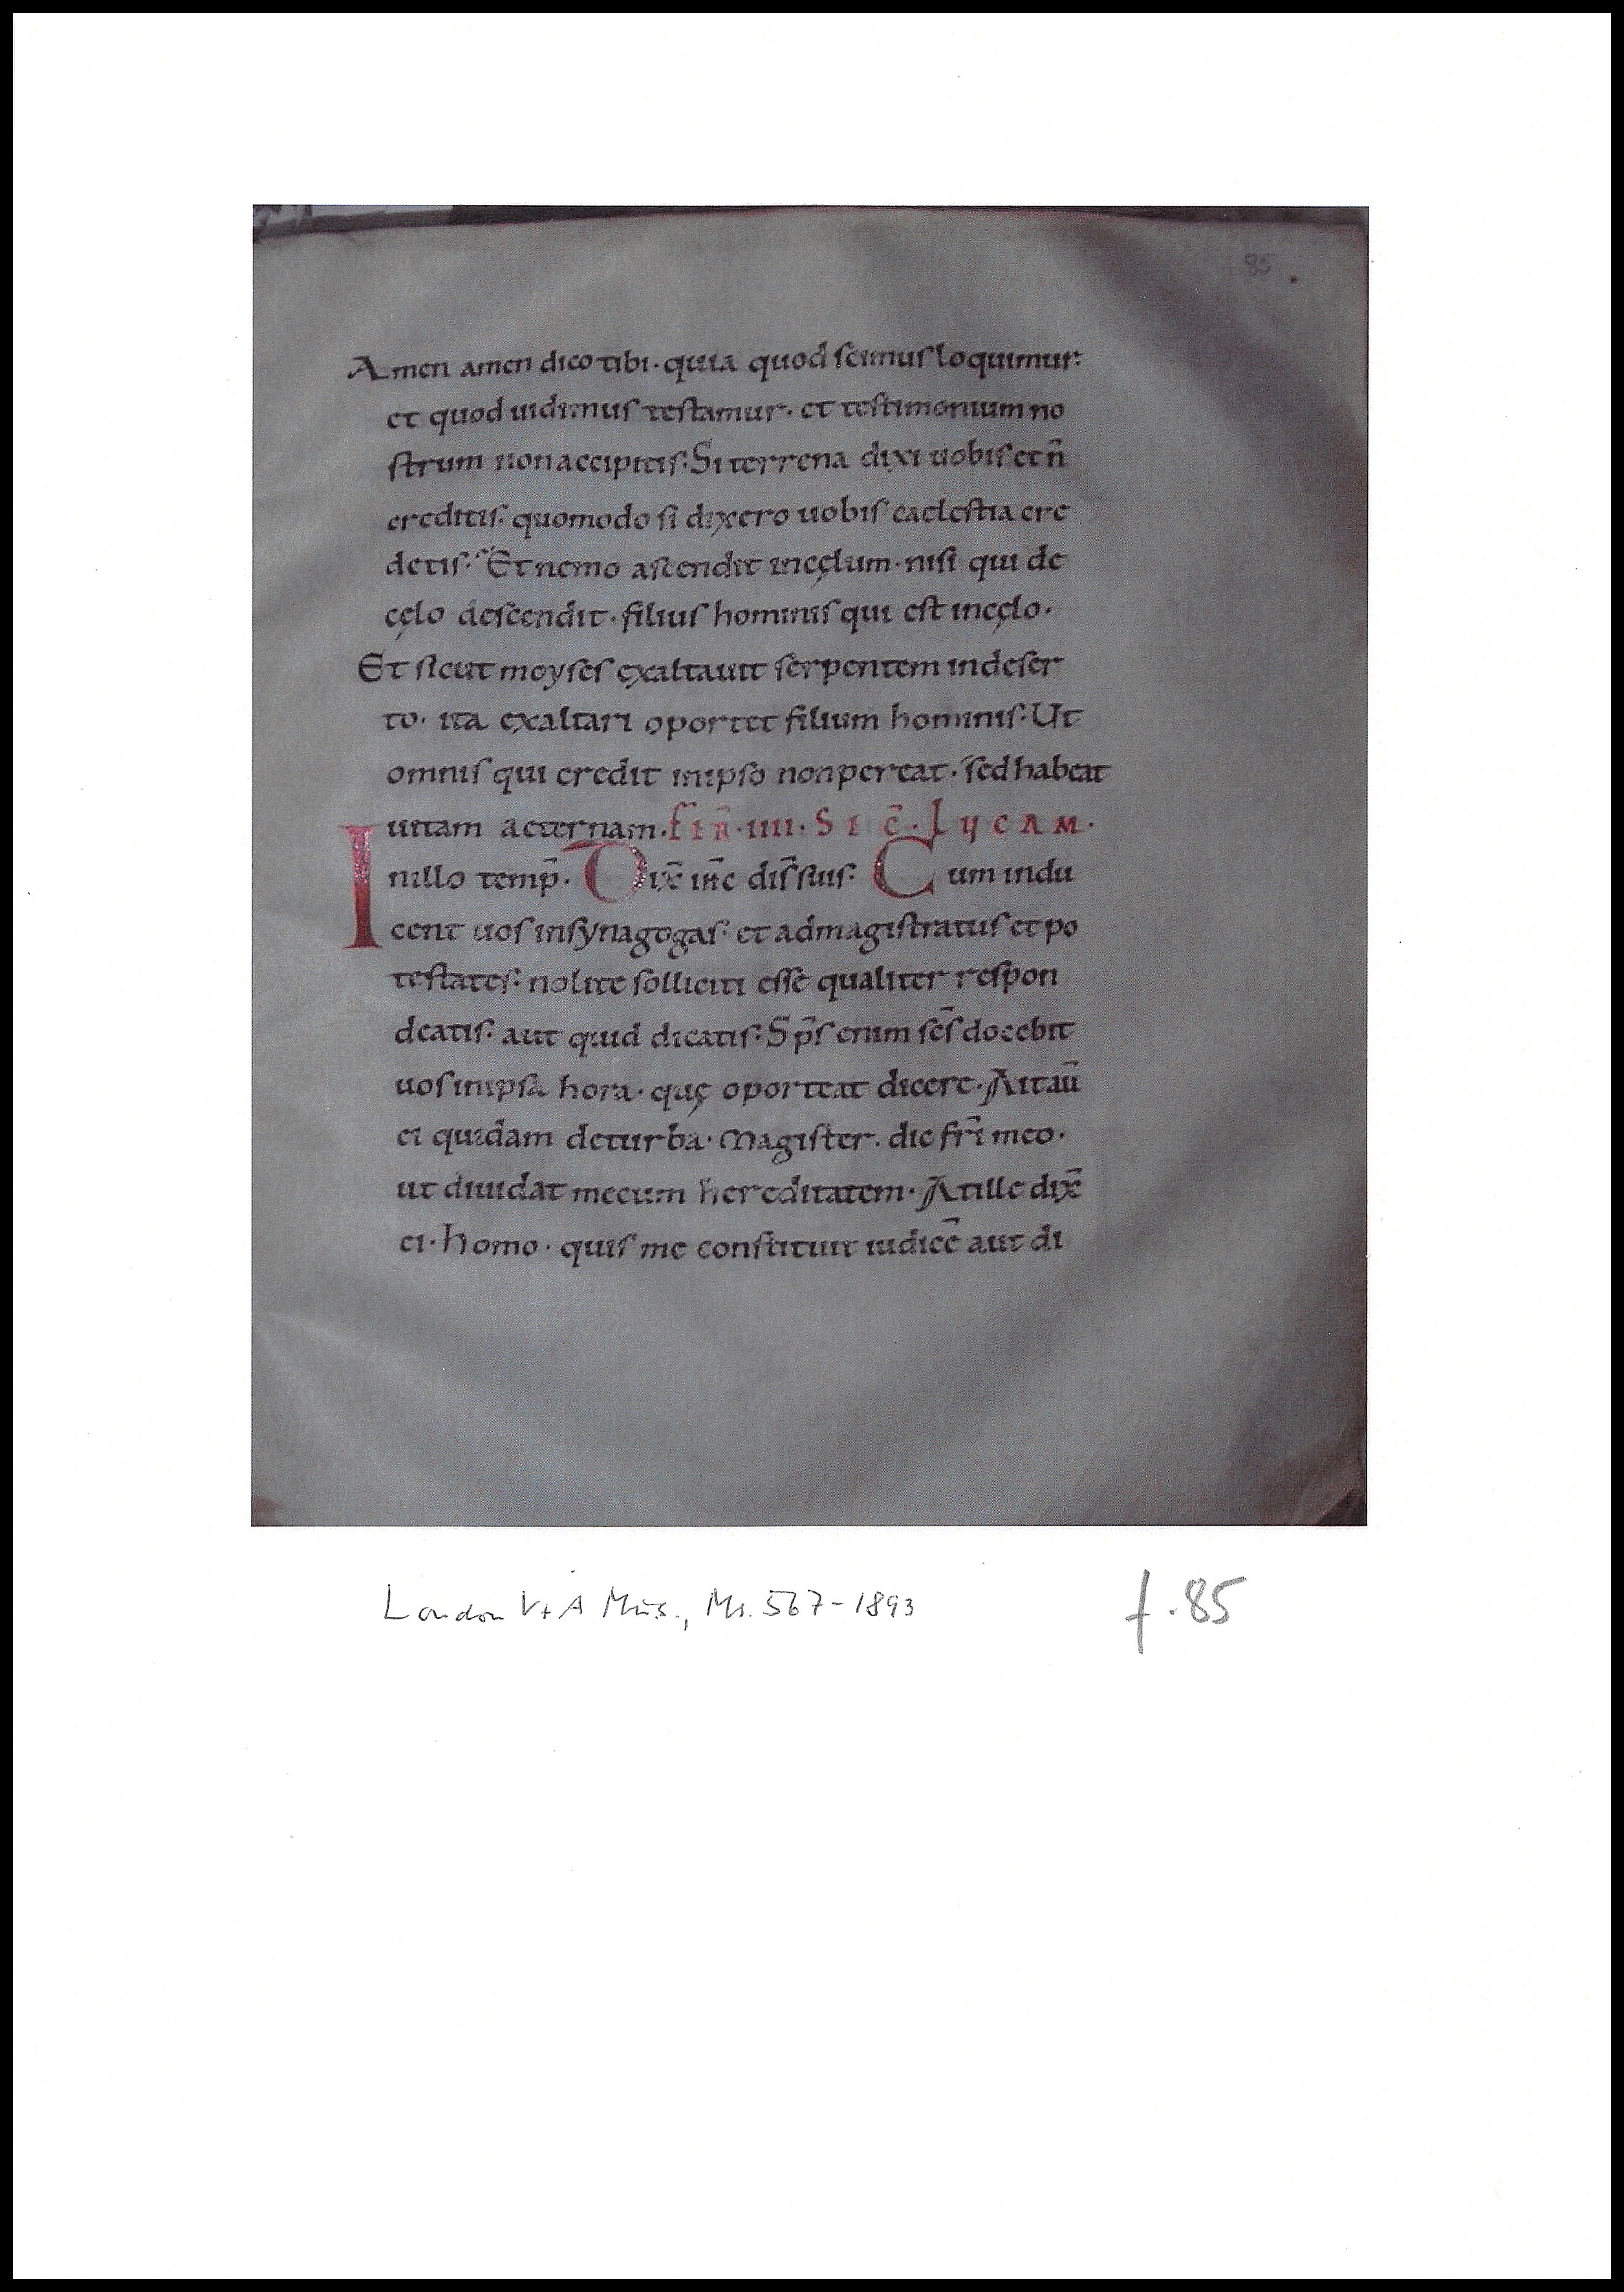 85
Amen amen dico tibi · quia quod scimus loquimur·
et quod uidimus testamur · et testimonium no
strum non accipitis · Si terrena dixi uobis et n̄
creditis · quomodo si dixero uobis caelestia cre
detis· Et nemo ascendit in cęlum · nisi qui de
cęlo descendit · filius hominis qui est in cęlo ·
Et sicut moyses exaltauit serpentem in deser
to · ita exaltari oportet filium hominis · Ut
omnis qui credit in ipso non pereat · sed habeat
uitam aeternam. FER̄ · IIII · S I · C̄ · LUCAM ·
In illo temp̄ · Dix̄ ih̄c dis̄ suis· Cum indu
cent uos in synagogas · et ad magistratus et po
testates · nolite solliciti esse qualiter respon
deatis · aut quid dicatis · Sp̄s enim sc̄s docebit
uos in ipsa hora · quę oporteat dicere · Ait aū
ei quidam de turba · Magister · dic fr̄i meo ·
ut diuidat mecum hereditatem · At ille dix̄
ei · Homo · quis me constituit iudicē aut di
London V+A Mus., Ms. 567-1893
f. 85